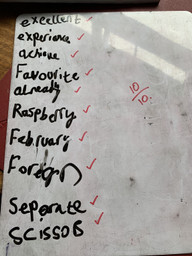 excellent
experience
achieve
Favourite
already
10/10
Raspberry
February
Foreign
Seperate
SCISSOB